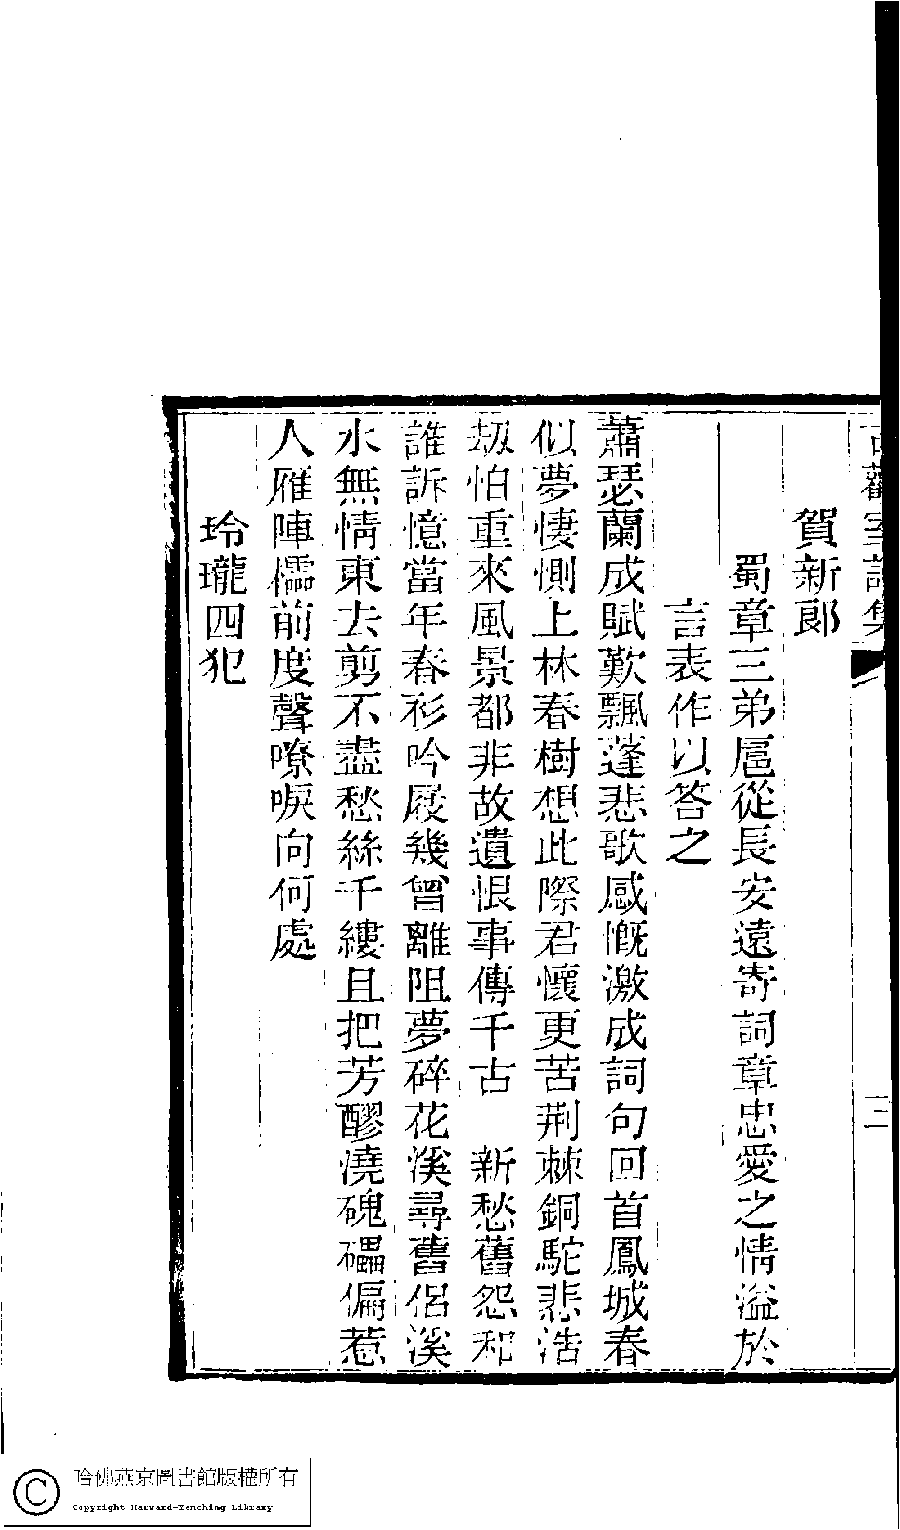 古歡室詞集
三
賀新郎
蜀章三弟扈從長安遠寄詞章忠愛之情溢於
言表作以答之
蕭瑟蘭成賦歎飄蓬悲歌感慨激成詞句回首鳳城春
似夢悽惻上林春樹想此際君懷更苦荆棘銅駝悲浩
刼怕重來風景都非故遺恨事傳千古　新愁舊怨和
誰訴憶當年春衫吟屐幾曾離阻夢碎花溪尋舊侶溪
水無情東去剪不盡愁絲千縷且把芳醪澆磈礧偏惹
人雁陣檽前度聲嘹唳向何處
玲瓏四犯
哈佛燕京圖書館版權所有
Copyright Harvard-Yenching Library